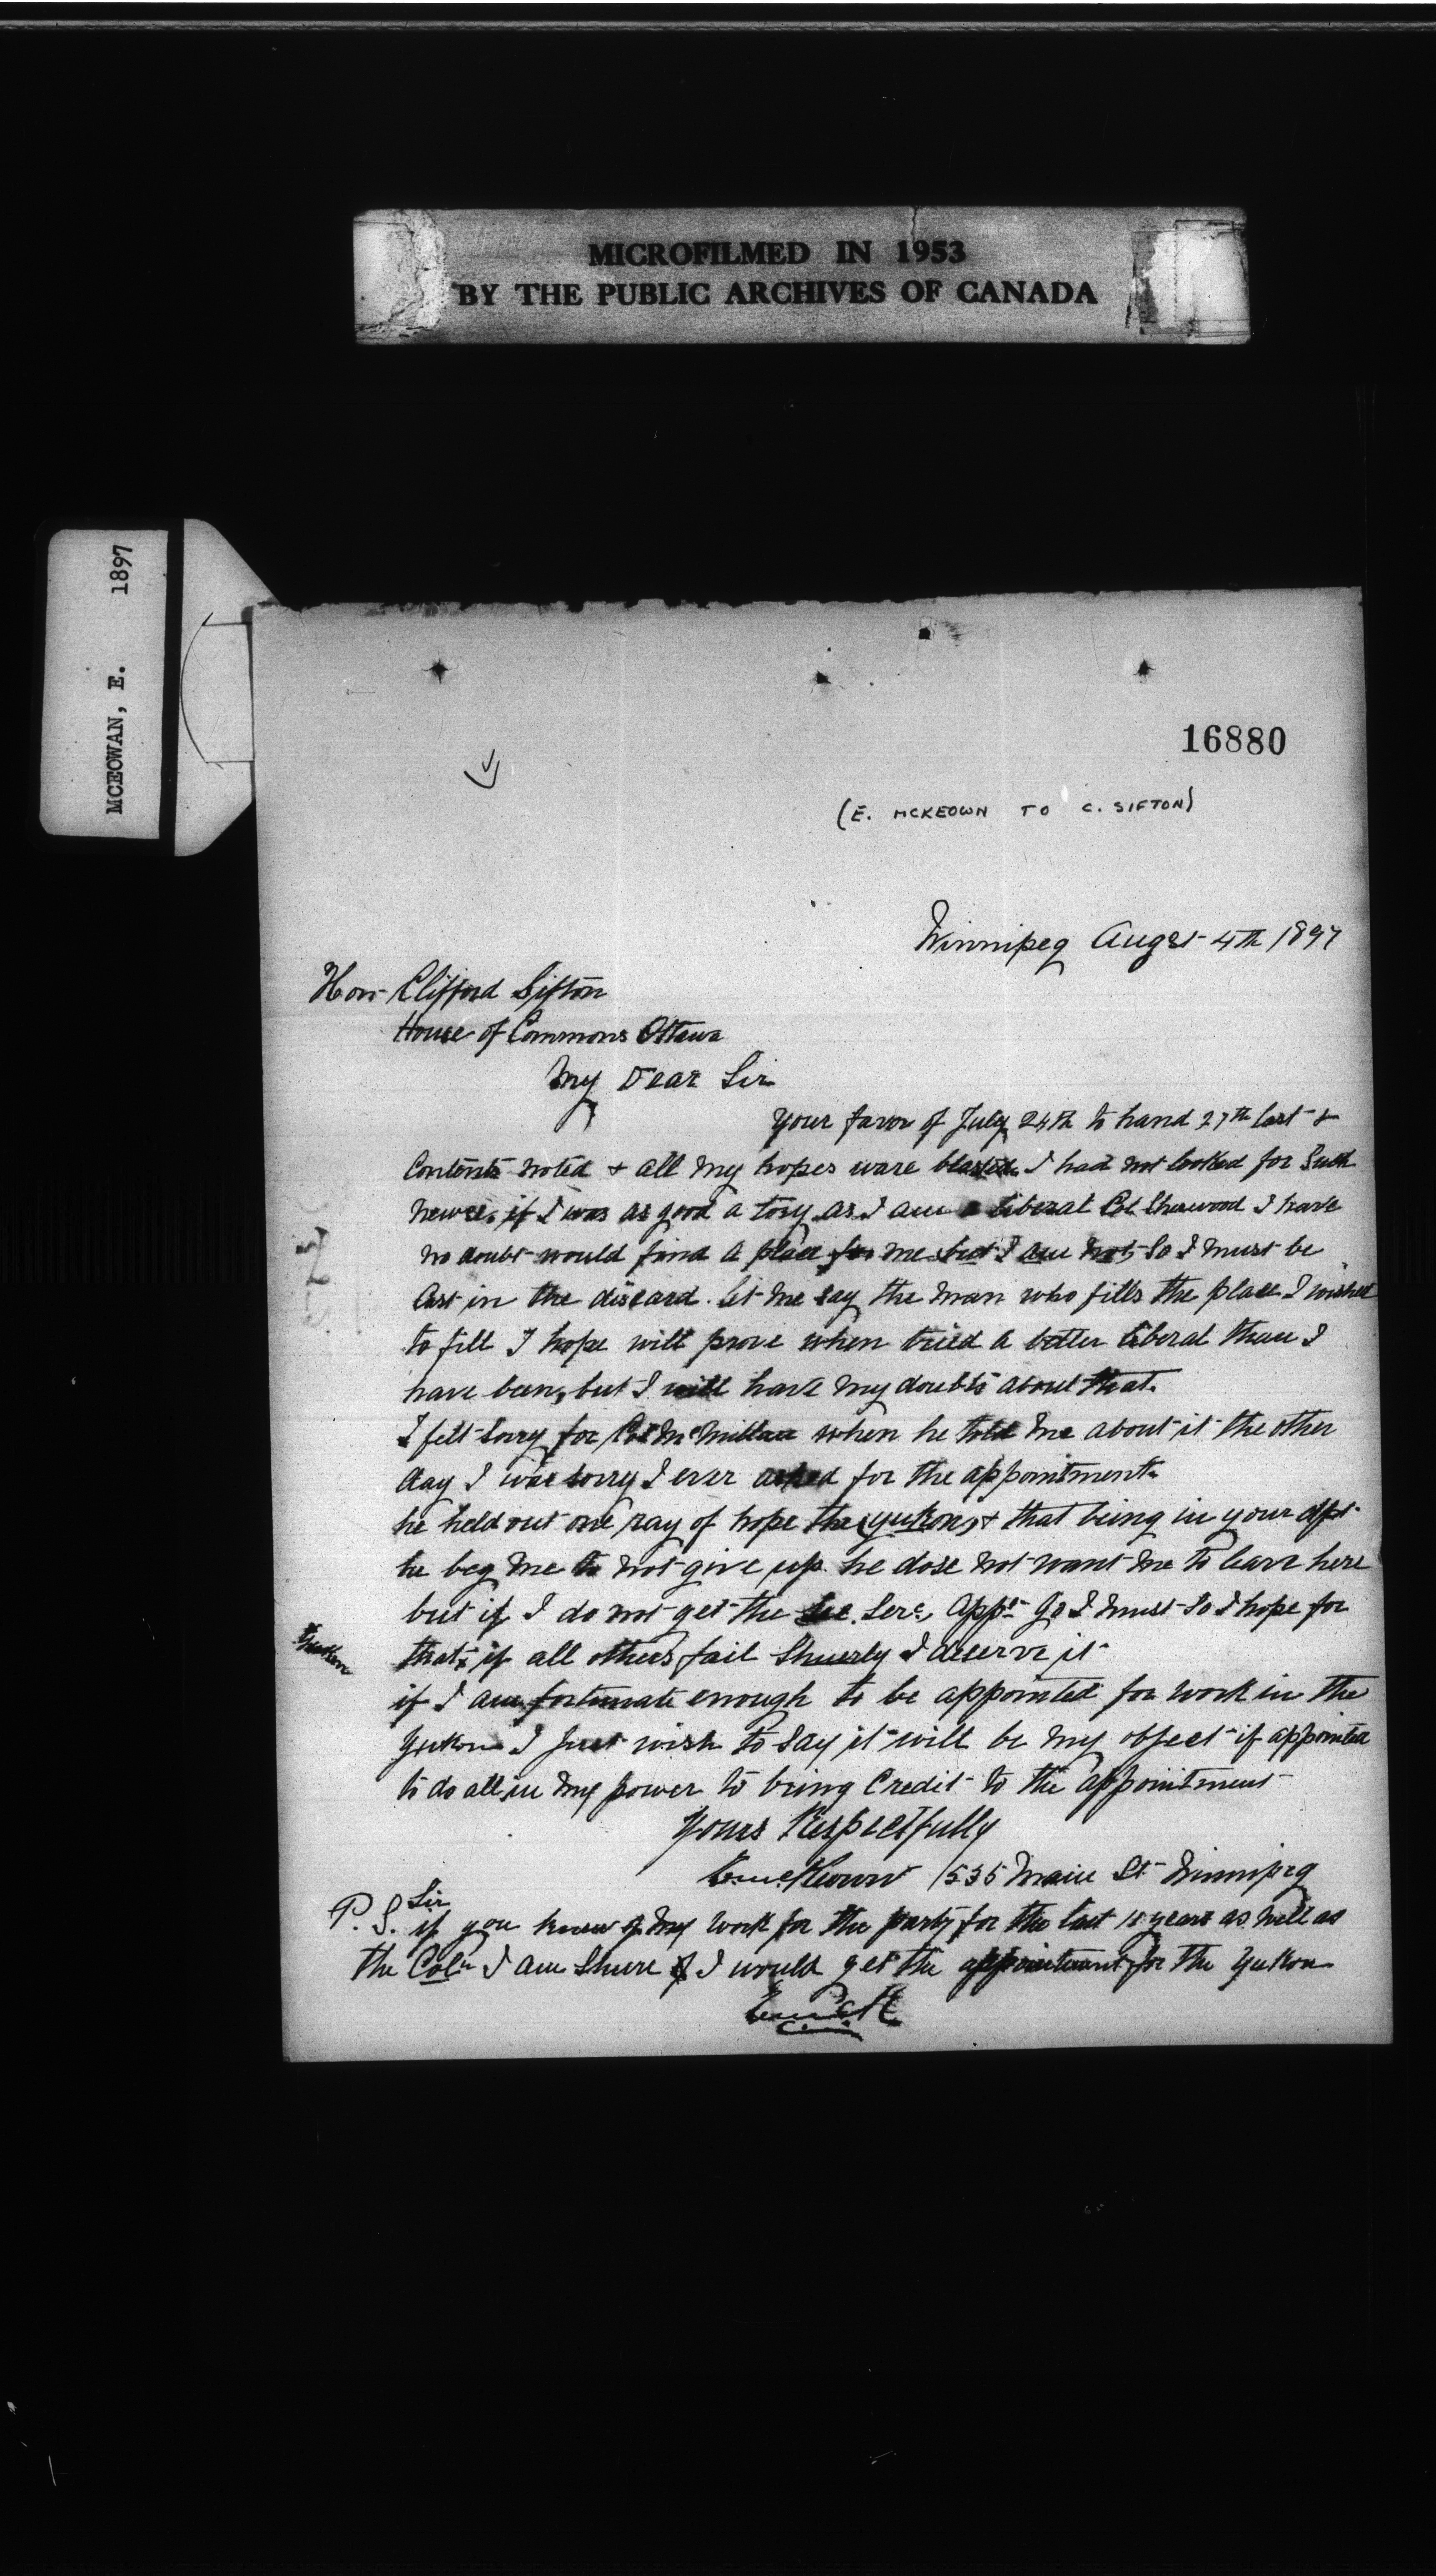 MICROFILMED IN 1953
BY THE PUBLIC ARCHIVES OF CANADA
MCEOWAN, E. 1897
16880
(E. MCKEOWN TO C. SIFTON)
Winnipeg Augst 4th 1897
Hon Clifford Sifton
House of Commons Ottawa
My Dear Sir
Your favor of July 24th to hand 27th last &
Contents noted & all my hopes ware blasted I had not looked for Such
newse. if I was as good a tory as I am a liberal Col Sherwood I have
no doubt would find a place for me but I am not, So I must be
Cast in the discard. let me say the man who fills the place I wished
to fill I hope will prove when tried a better liberal than I
have been, but I will have my doubts about that.
I felt sorry for Col McMillan when he told me about it the other
day I was sorry I ever asked for the appointment.
he held out one ray of hope the Yukon, & that being in your dpt
he beg me to not give up he dose not want me to leave here
but if I do not get the Sec. Serc, Appt Go I must So I hope for
Yukon
that, if all others fail Shuerly I deserve it
if I am fortunate enough to be appointed for work in the
Yukon I Just wish to Say it will be my object if appointed
to do all in my power to bring Credit to the appointment
Yours Respectfully
E McKeown 535 Main St Winnipeg
P. S. Sir
if you knew of my work for the party for the last 18 years as well as
the Coln I am Shure I would get the appointment for the Yukon
E McK